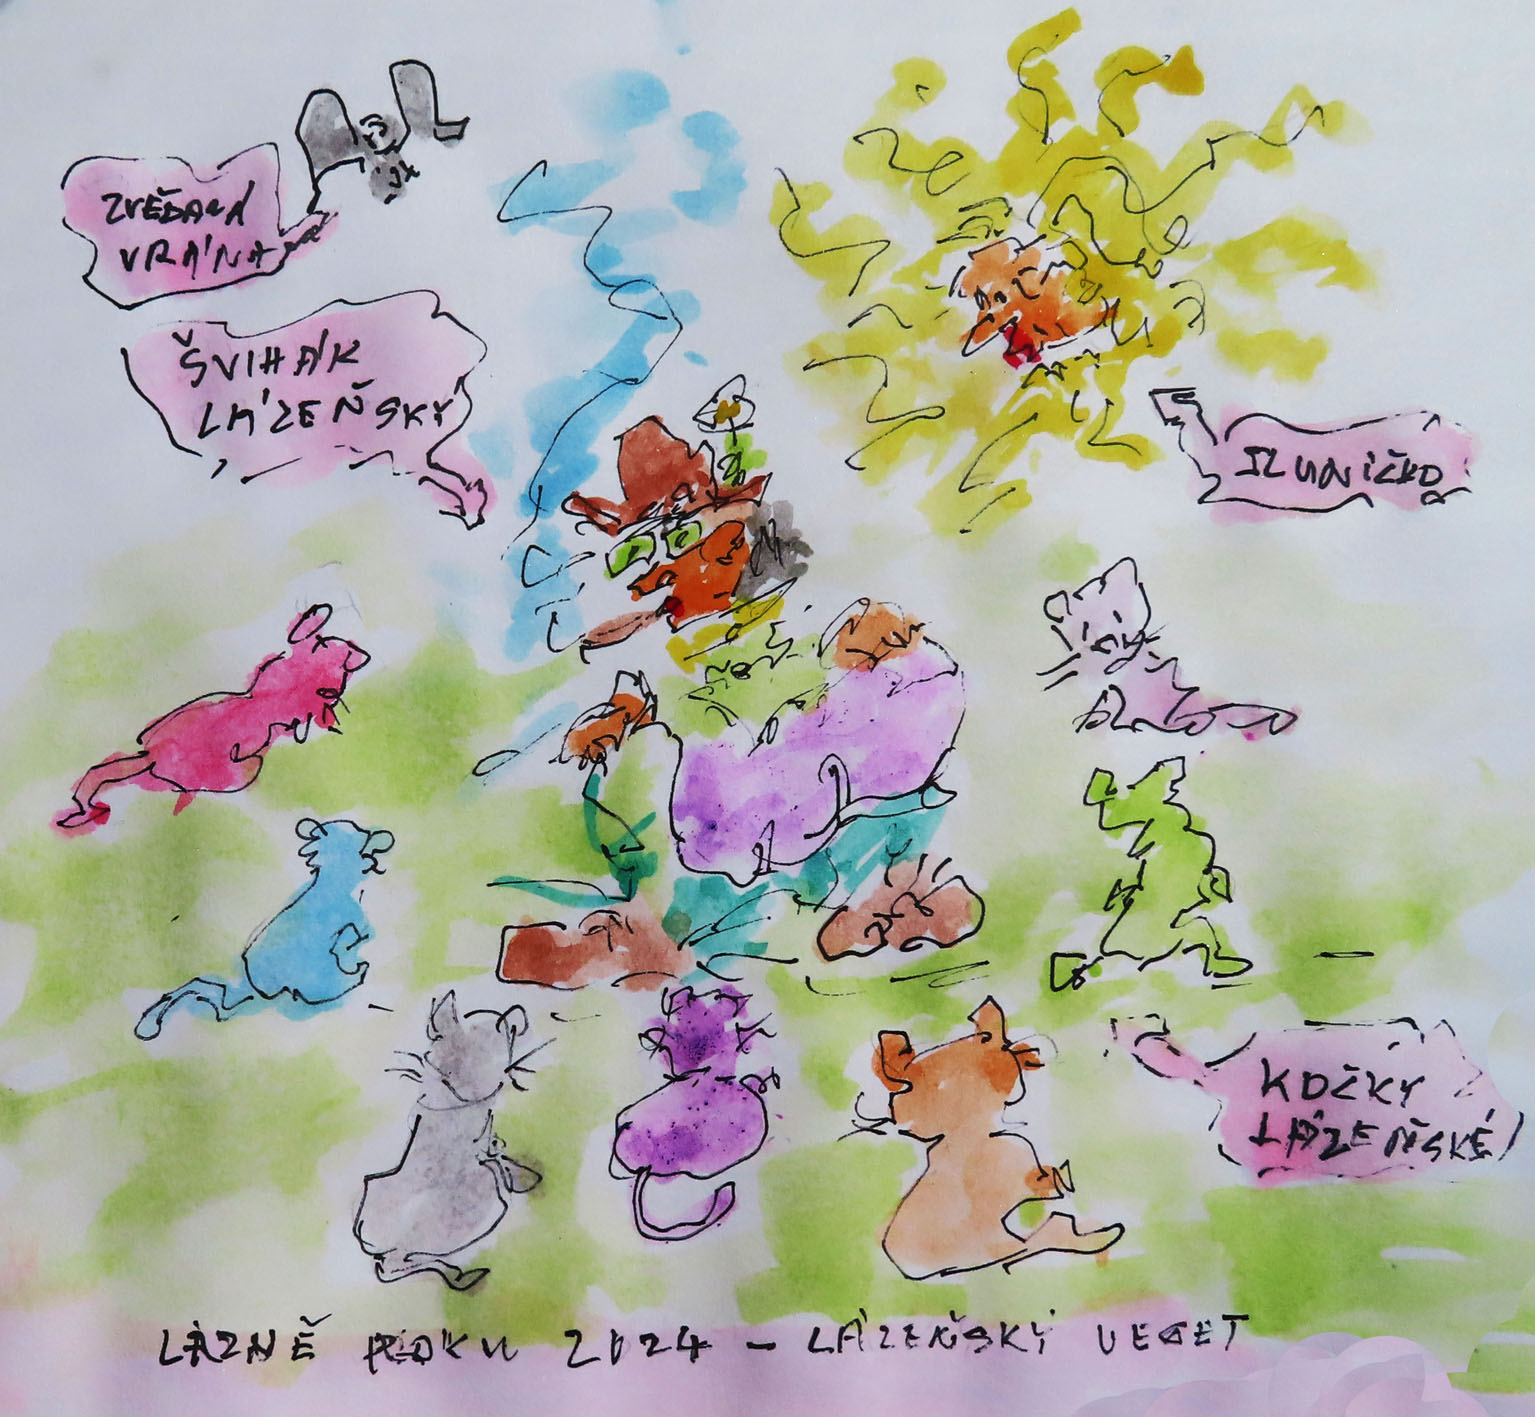 ZVĚDAVÁ
VRÁNA
ŠVIHÁK
LÁZEŇSKÝ
SLUNÍČKO
KOČKY
LÁZEŇSKÉ
LÁZNĚ ROKU 2024 - LÁZEŇSKÝ VEGET